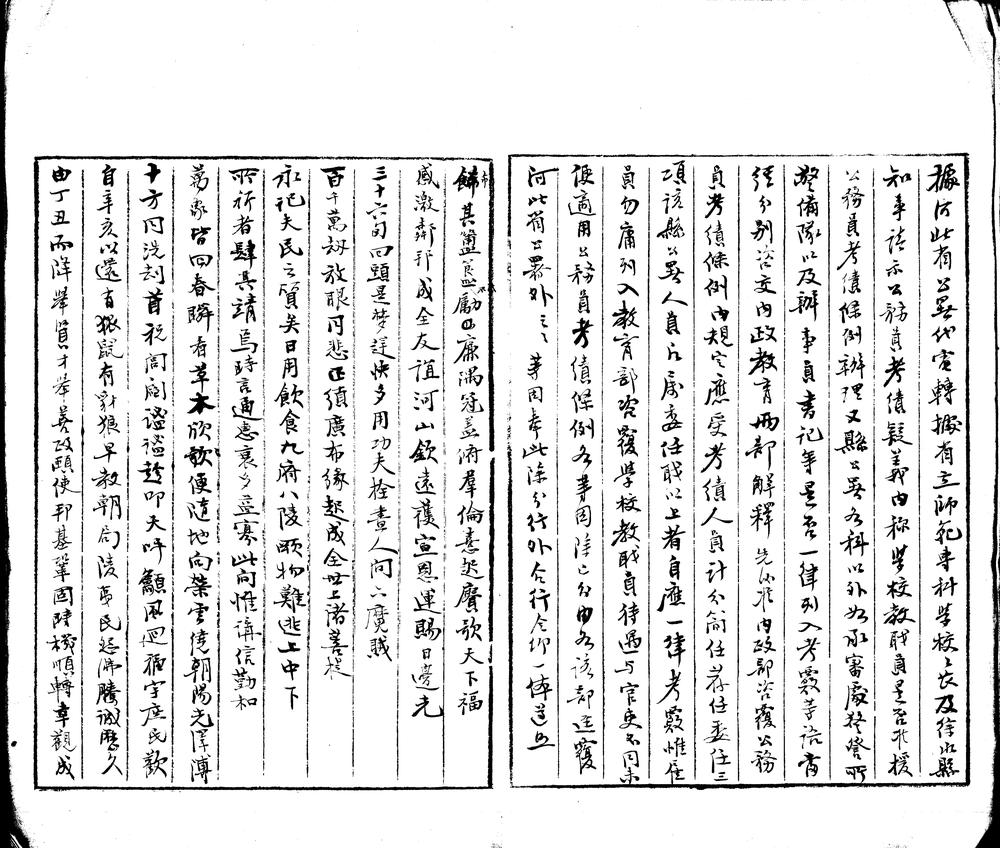 據河此省公署代電轉據省立師範專科學校校長及徐水縣
知事請示公務員考績疑義內稱學校教職員是否非援
公務員考績條例辦理又縣公署各科以外如承審處警營所
警備隊以及辦事員書記等是否一律列入考覈等語當
經分別咨交內政教育兩部解釋先後准內政部咨覆公務
員考績條例內規定應受考績人員計分簡任荐任委任三
項該縣公署人員凡屬委任職以上者自應一律考覈惟雇
員勿庸列入教育部咨覆學校教職員待遇与官吏不同未
便適用公務員考績條例各等因除已分由各該部逕覆
河此省公署外云云等因奉此除分行外合行令仰一体遵照
歸其簠簋勵正廉隅冠蓋俯羣倫憙起賡歌天下福
感激鄰邦成全友誼河山欽遠護宣恩運賜日邊光
三十六旬回頭是夢逞快多用功夫拴書人間六魔賊
百千萬劫放眼同悲正須廣布緣起成全世上諸菩提
永祀夫民之質矣日用飲食九府八陵頤物難逃上中下
所祈者肆其靖焉時言通惠衷多益寡此向惟講信勤和
萬象皆回春瞬看草木欣歡便隨地向榮雲倚朝陽光澤溥
十方同洗刮首祝閭閻謐謐趁叩天呼籲風迴福宇庶民歡
自辛亥以還有狠鼠有豺狼早教朝局陵夷民怨沸騰誠歷久
由丁丑而降舉賢才舉善政頤使邦基鞏固時機順轉幸觀成